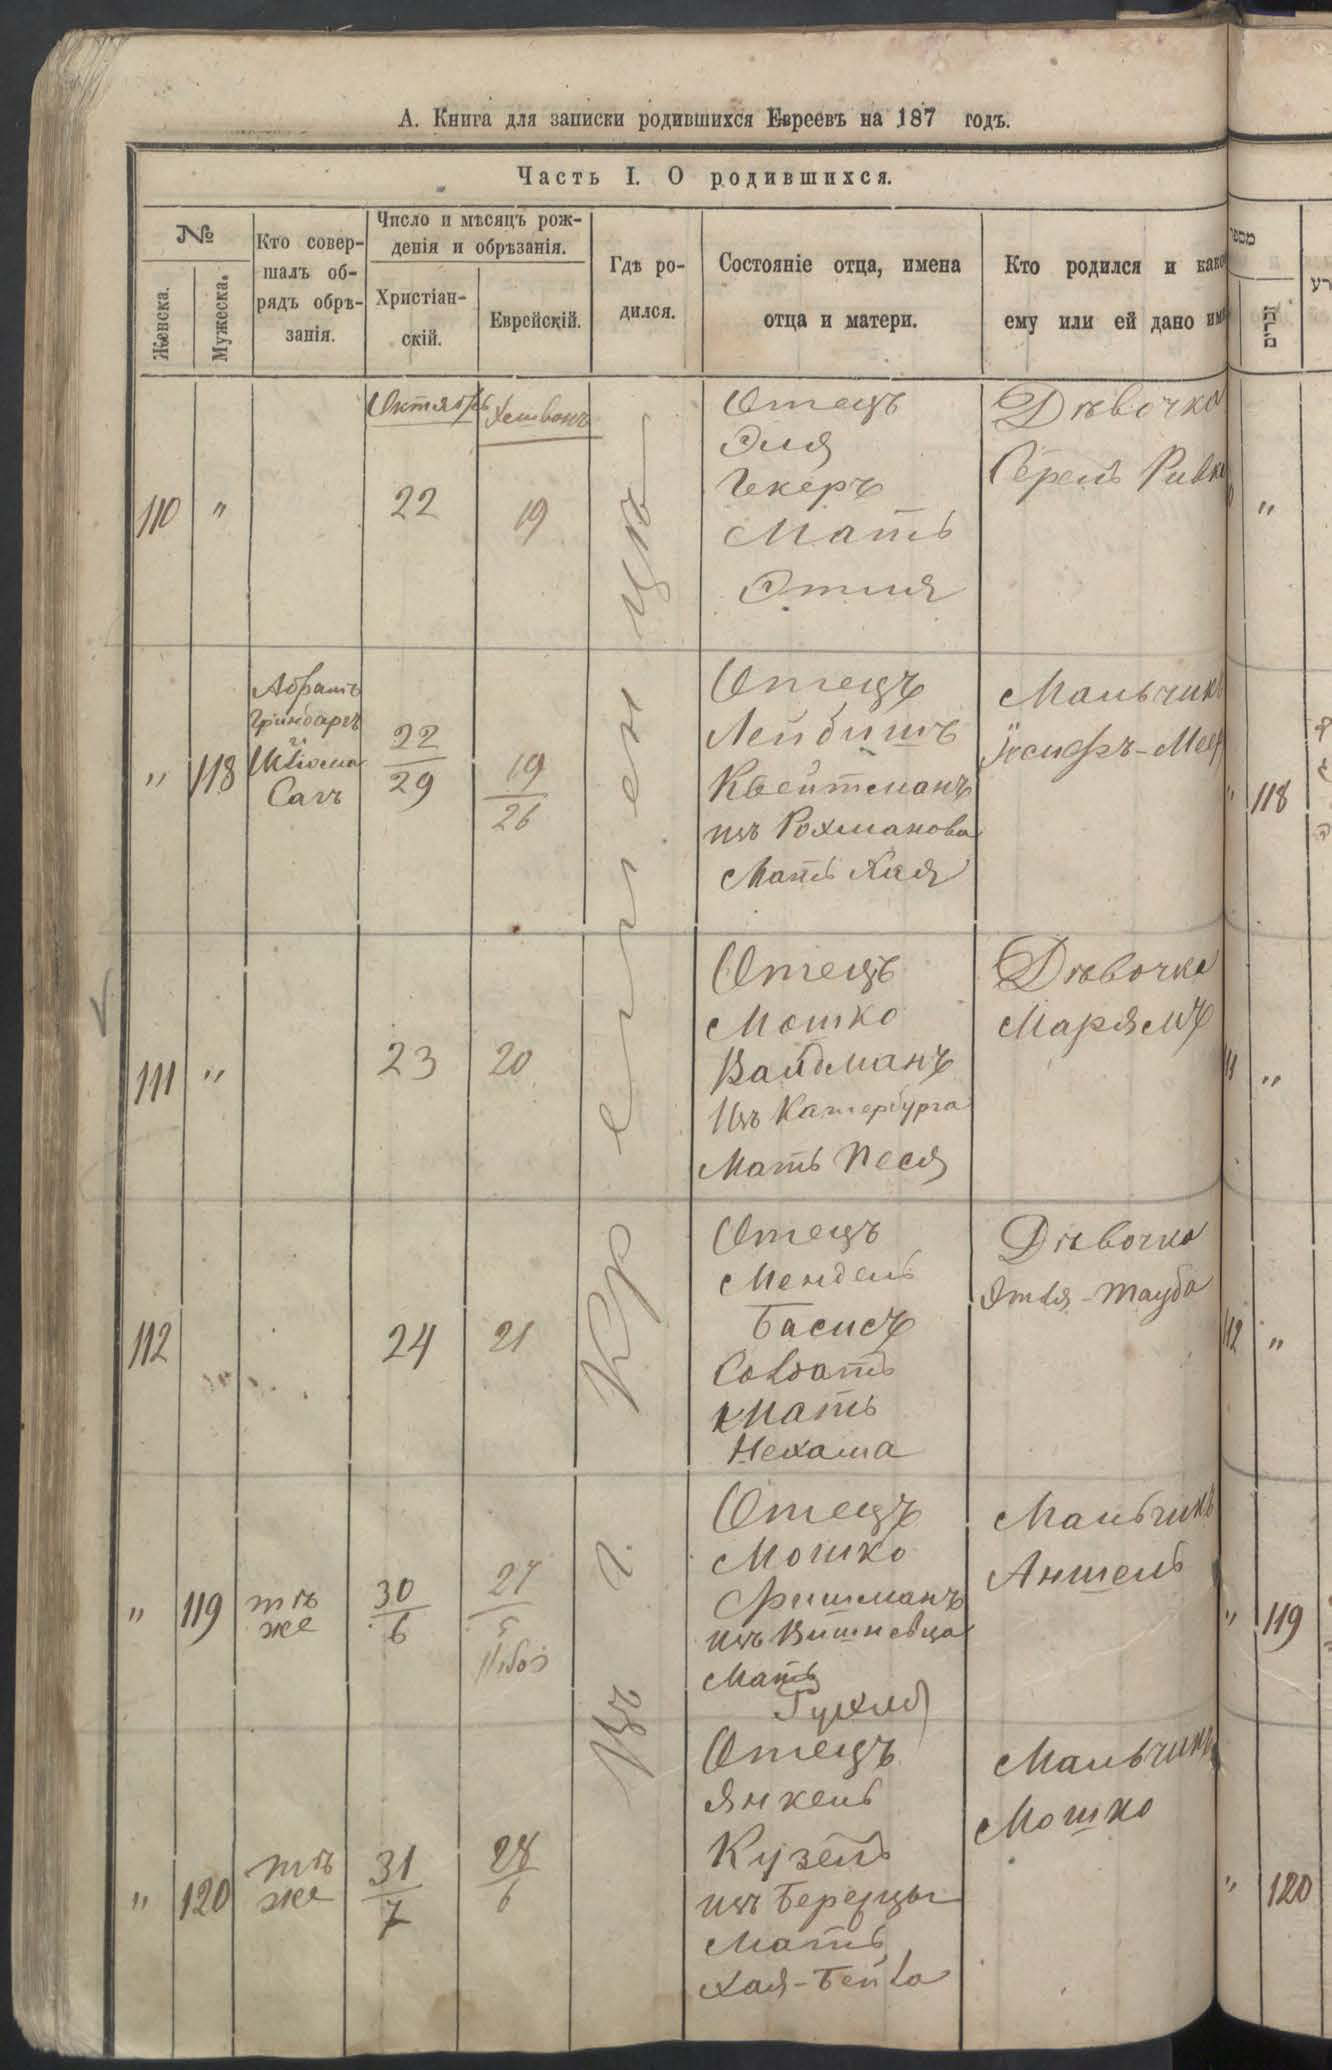 А. Книга для записки родившихся Евреевъ на 187 годъ.
Часть I. О родившихся.
№
Женска.
Мужеска.
Кто совер-
шалъ об-
рядъ обрѣ-
занія.
Число и мѣсяцъ рож-
денія и обрѣзанія.
Христіан-
скій.
Еврейскій.
Гдѣ ро-
дился.
Состояніе отца, имена
отца и матери.
Кто родился и како
ему или ей дано им
מספר
זכרים
Въ г. Кременцѣ
110
"
Октябрь
22
Хешванъ
19
Отецъ
Эля
Гекеръ
Мать
Этля
Дѣвочка
Серель Ривка
"
"
118
Абрамъ
Гринбаргъ
и
Шлиома
Сагъ
22
29
19
26
Отецъ
Лейбишъ
Квейтманъ
изъ Рохманова
Мать Хая
Мальчикъ
Іосифъ-Меер
"
118
111
"
23
20
Отецъ
Мошко
Вайдманъ
Изъ Катербурга
Мать Песя
Дѣвочка
Марямъ
"
112
24
21
Отецъ
Мендель
Басисъ
Солдатъ
Мать
Нехама
Дѣвочка
Этля-Тауба
112
"
"
119
тѣ
же
30
6
27
5
Отецъ
Мошко
Фришманъ
изъ Вишневца
Мать
Рухля
Мальчикъ
Аншель
"
119
"
120
тѣ
же
31
7
28
6
Отецъ
Янкель
Кузель
изъ Березцы
Мать
Хая-Бейла
Мальчикъ
Мошко
"
120